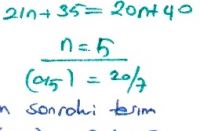 21n + 35 = 20n + 40
n = 5
(a15) = 20/7
n sonraki terim